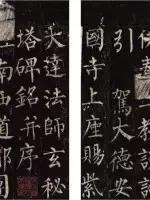 引 駕大德安
國寺上座賜紫
大達法師玄秘
塔碑銘并序
南西道都團